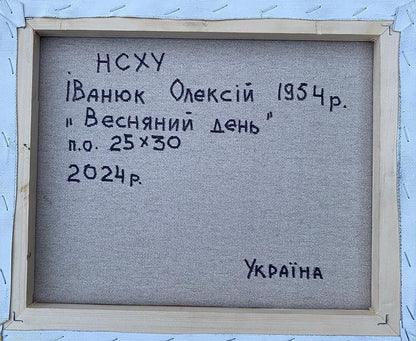 НСХУ
Іванюк Олексій 1954р.
„Весняний день"
п.о. 25×30
2024р.
Україна